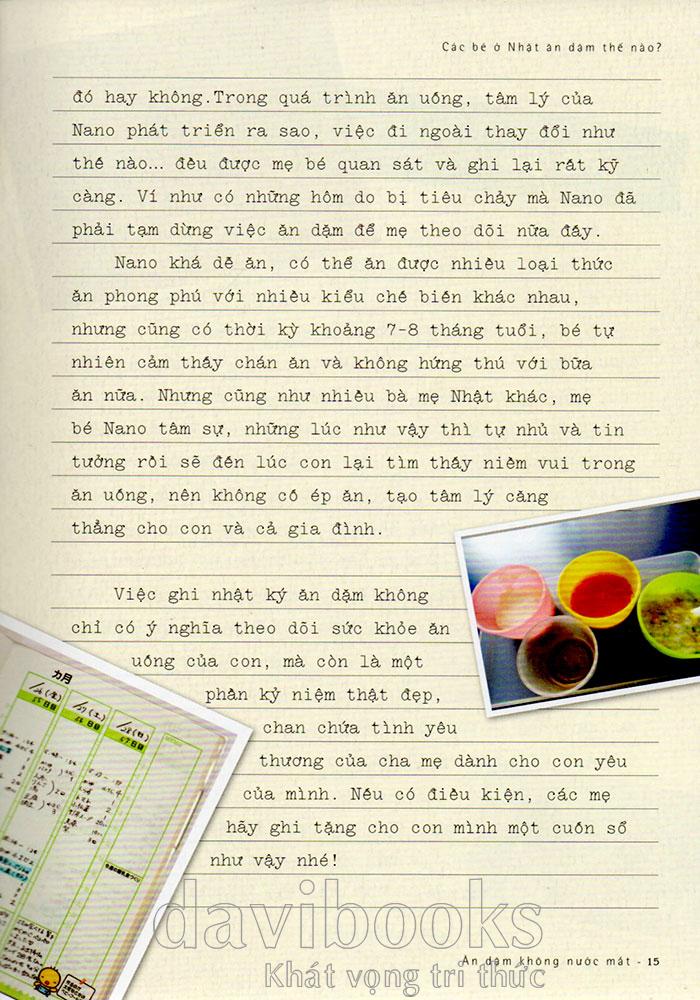 Các bé ở Nhật ăn dặm thế nào?
đó hay không.Trong quá trình ăn uống, tâm lý của
Nano phát triển ra sao, việc đi ngoài thay đổi như
thế nào... đều được mẹ bé quan sát và ghi lại rất kỹ
càng. Ví như có những hôm do bị tiêu chảy mà Nano đã
phải tạm dừng việc ăn dặm để mẹ theo dõi nữa đấy.
Nano khá dễ ăn, có thể ăn được nhiều loại thức
ăn phong phú với nhiều kiểu chế biến khác nhau,
nhưng cũng có thời kỳ khoảng 7-8 tháng tuổi, bé tự
nhiên cảm thấy chán ăn và không hứng thú với bữa
ăn nữa. Nhưng cũng như nhiều bà mẹ Nhật khác, mẹ
bé Nano tâm sự, những lúc như vậy thì tự nhủ và tin
tưởng rồi sẽ đến lúc con lại tìm thấy niềm vui trong
ăn uống, nên không cố ép ăn, tạo tâm lý căng
thẳng cho con và cả gia đình.
Việc ghi nhật ký ăn dặm không
chỉ có ý nghĩa theo dõi sức khỏe ăn
uống của con, mà còn là một
phần kỷ niệm thật đẹp,
chan chứa tình yêu
thương của cha mẹ dành cho con yêu
của mình. Nếu có điều kiện, các mẹ
hãy ghi tặng cho con mình một cuốn sổ
như vậy nhé!
カ月
davibooks
Khát vọng tri thức
Ăn dặm không nước mắt - 15